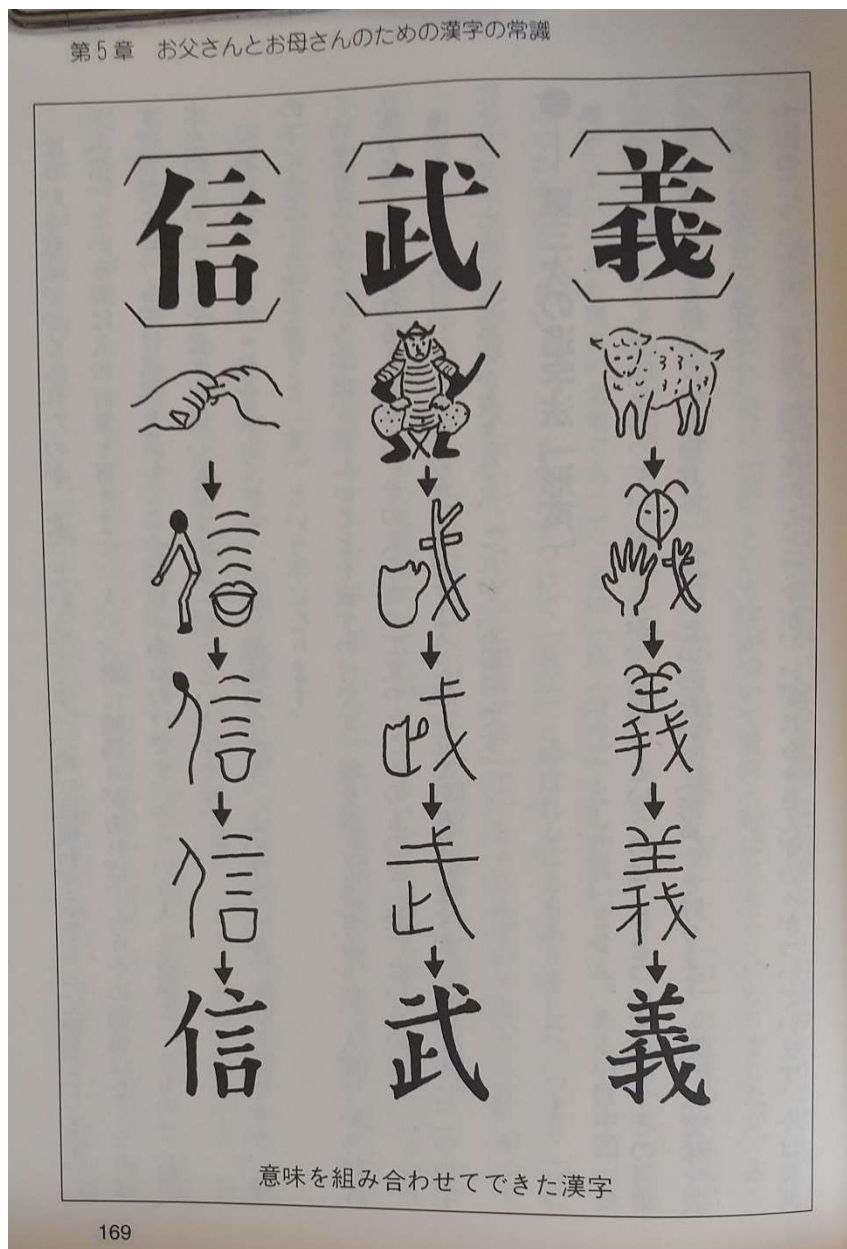 第5章 お父さんとお母さんのための漢字の常識
信 武 義
信 武 義
意味を組み合わせてできた漢字
169